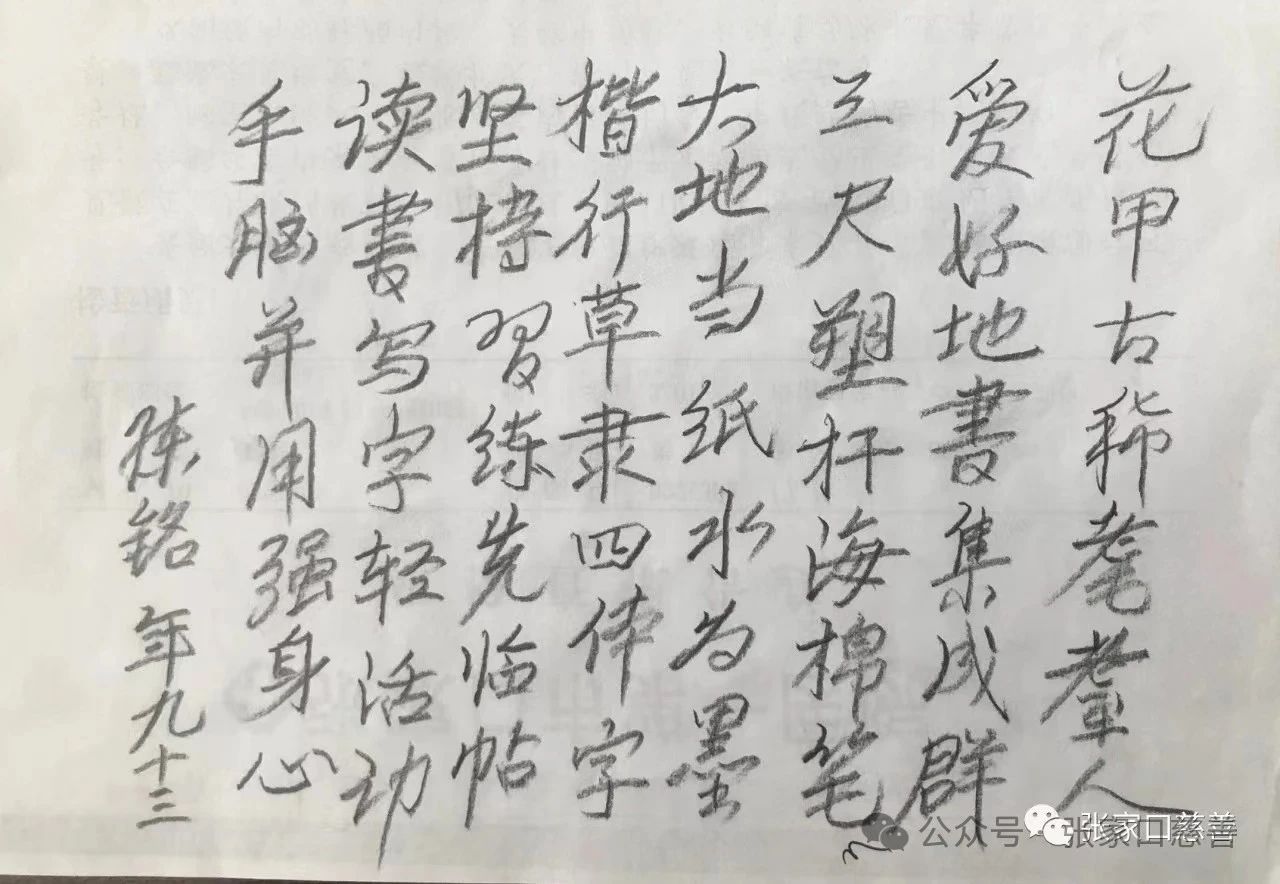 花甲古稀耄耋人
爱好地書集成群
三尺塑杆海棉笔
大地当纸水为墨
楷行草隶四体字
坚持習练先临帖
读書写字轻活动
手脑并用强身心
陈铭 年九十三
公众号·张家口慈善
张家口慈善